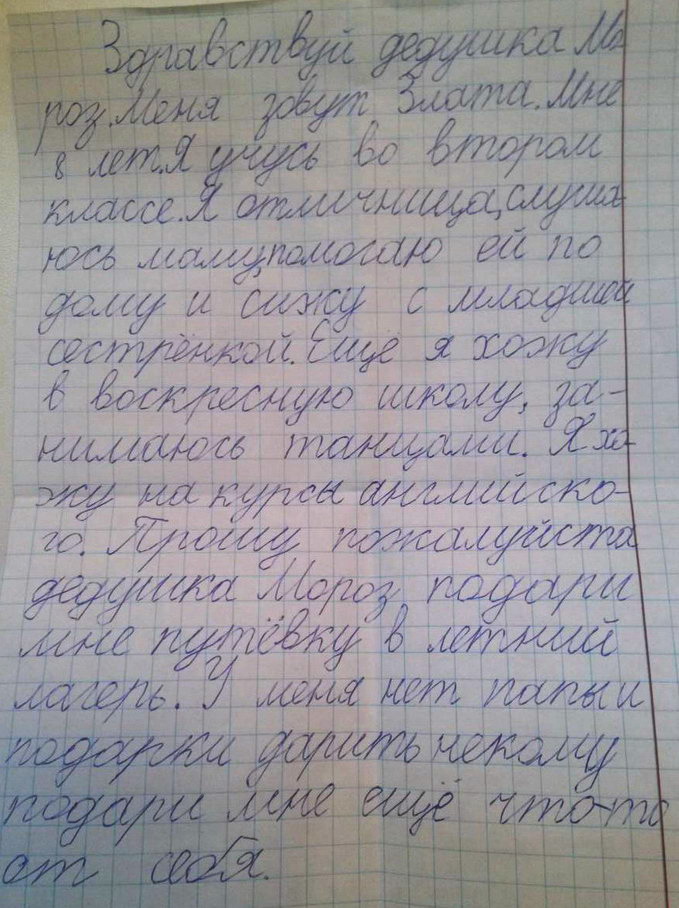 Здравствуй дедушка Мо
роз. Меня зовут Злата. Мне
8 лет.Я учусь во втором
классе.Я отличница,слуша-
юсь маму,помогаю ей по
дому и сижу с младшей
сестрёнкой. Ещё я хожу
в воскресную школу, за-
нимаюсь танцами. Я хо-
жу на курсы английско-
го. Прошу пожалуйста
дедушка Мороз подари
мне путёвку в летний
лагерь. У меня нет папы и
подарки дарить некому
подари мне ещё что-то
от себя.